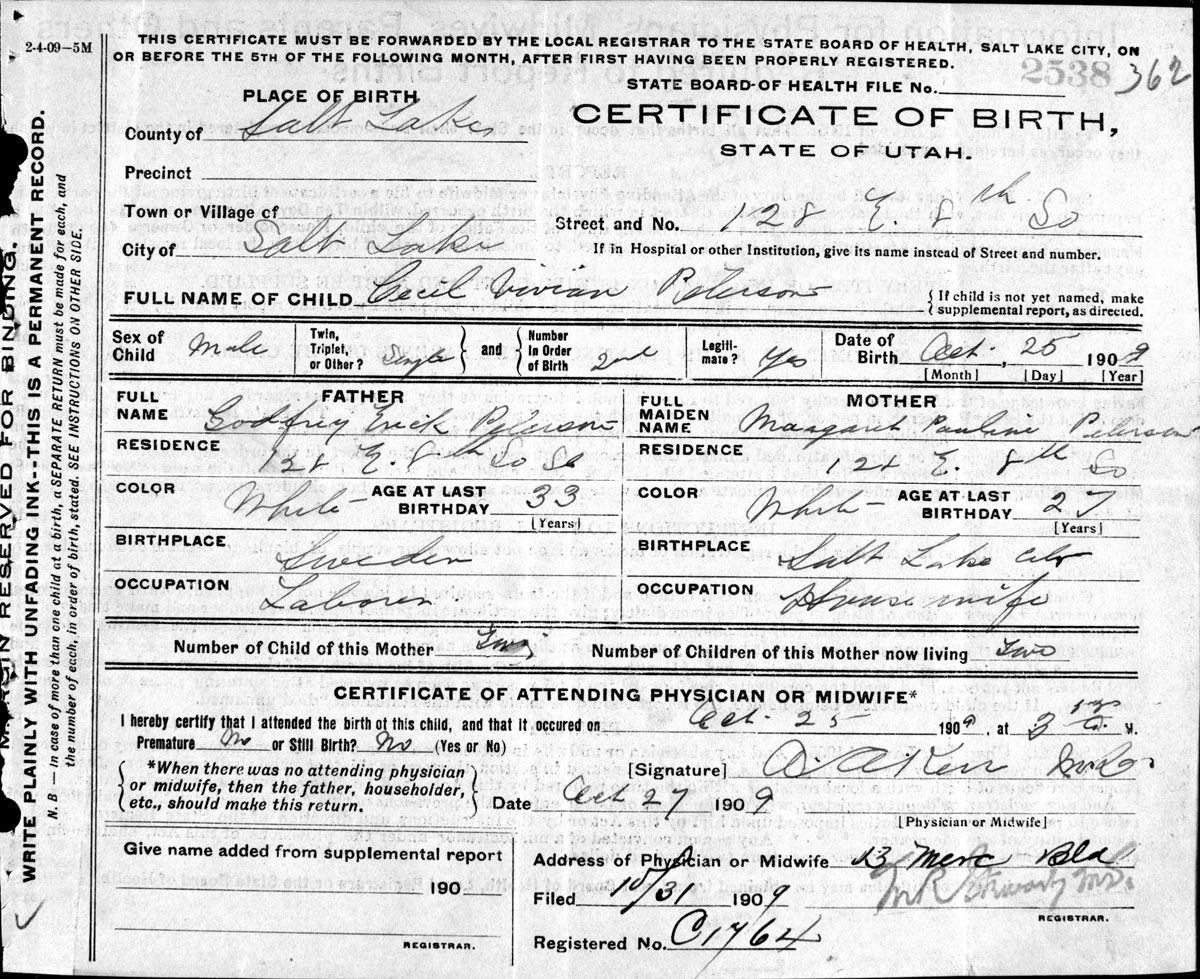 2-4-09—5M
THIS CERTIFICATE MUST BE FORWARDED BY THE LOCAL REGISTRAR TO THE STATE BOARD OF HEALTH, SALT LAKE CITY, ON
OR BEFORE THE 5TH OF THE FOLLOWING MONTH, AFTER FIRST HAVING BEEN PROPERLY REGISTERED.
2538 362
STATE BOARD OF HEALTH FILE No.
PLACE OF BIRTH
CERTIFICATE OF BIRTH,
STATE OF UTAH.
County of Salt Lake
Precinct
Town or Village of
Street and No. 128 E. 8th So
City of Salt Lake
If in Hospital or other Institution, give its name instead of Street and number.
FULL NAME OF CHILD Cecil Vivian Peterson
{ If child is not yet named, make supplemental report, as directed.
Sex of Child Male
Twin, Triplet, or Other? Single } and { Number In Order of Birth 2nd
Legitimate? Yes
Date of Birth Oct. 25, 1909
[Month] [Day] [Year]
FATHER
FULL NAME Godfrey Erick Peterson
RESIDENCE 128 E 8th So St
COLOR White AGE AT LAST BIRTHDAY 33
[Years]
BIRTHPLACE Sweden
OCCUPATION Laborer
MOTHER
FULL MAIDEN NAME Margaret Pauline Peterson
RESIDENCE 128 E. 8th So
COLOR White AGE AT LAST BIRTHDAY
[Years]
BIRTHPLACE Salt Lake City
OCCUPATION Housewife
Number of Child of this Mother Two Number of Children of this Mother now living Two
CERTIFICATE OF ATTENDING PHYSICIAN OR MIDWIFE*
I hereby certify that I attended the birth of this child, and that it occured on Oct. 25 1909, at 3 M.
Premature No or Still Birth? No (Yes or No)
{ *When there was no attending physician or midwife, then the father, householder, etc., should make this return. }
[Signature]
Date Oct 27 1909
[Physician or Midwife]
Give name added from supplemental report
190
REGISTRAR.
Address of Physician or Midwife 13 Merc Bld
Filed 10/31 1909
REGISTRAR.
Registered No. C1764
MARGIN RESERVED FOR BINDING.
WRITE PLAINLY WITH UNFADING INK--THIS IS A PERMANENT RECORD.
N. B. — In case of more than one child at a birth, a SEPARATE RETURN must be made for each, and
the number of each, in order of birth, stated. SEE INSTRUCTIONS ON OTHER SIDE.